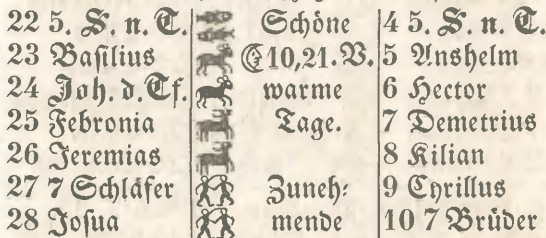 22 5. S. n. T. Schöne 4 5. S. n. T.
23 Basilius 10,21. V. 5 Anshelm
24 Joh. d. Tf. warme 6 Hector
25 Febronia Tage. 7 Demetrius
26 Jeremias 8 Kilian
27 7 Schläfer Zuneh⸗ 9 Cyrillus
28 Josua mende 10 7 Brüder